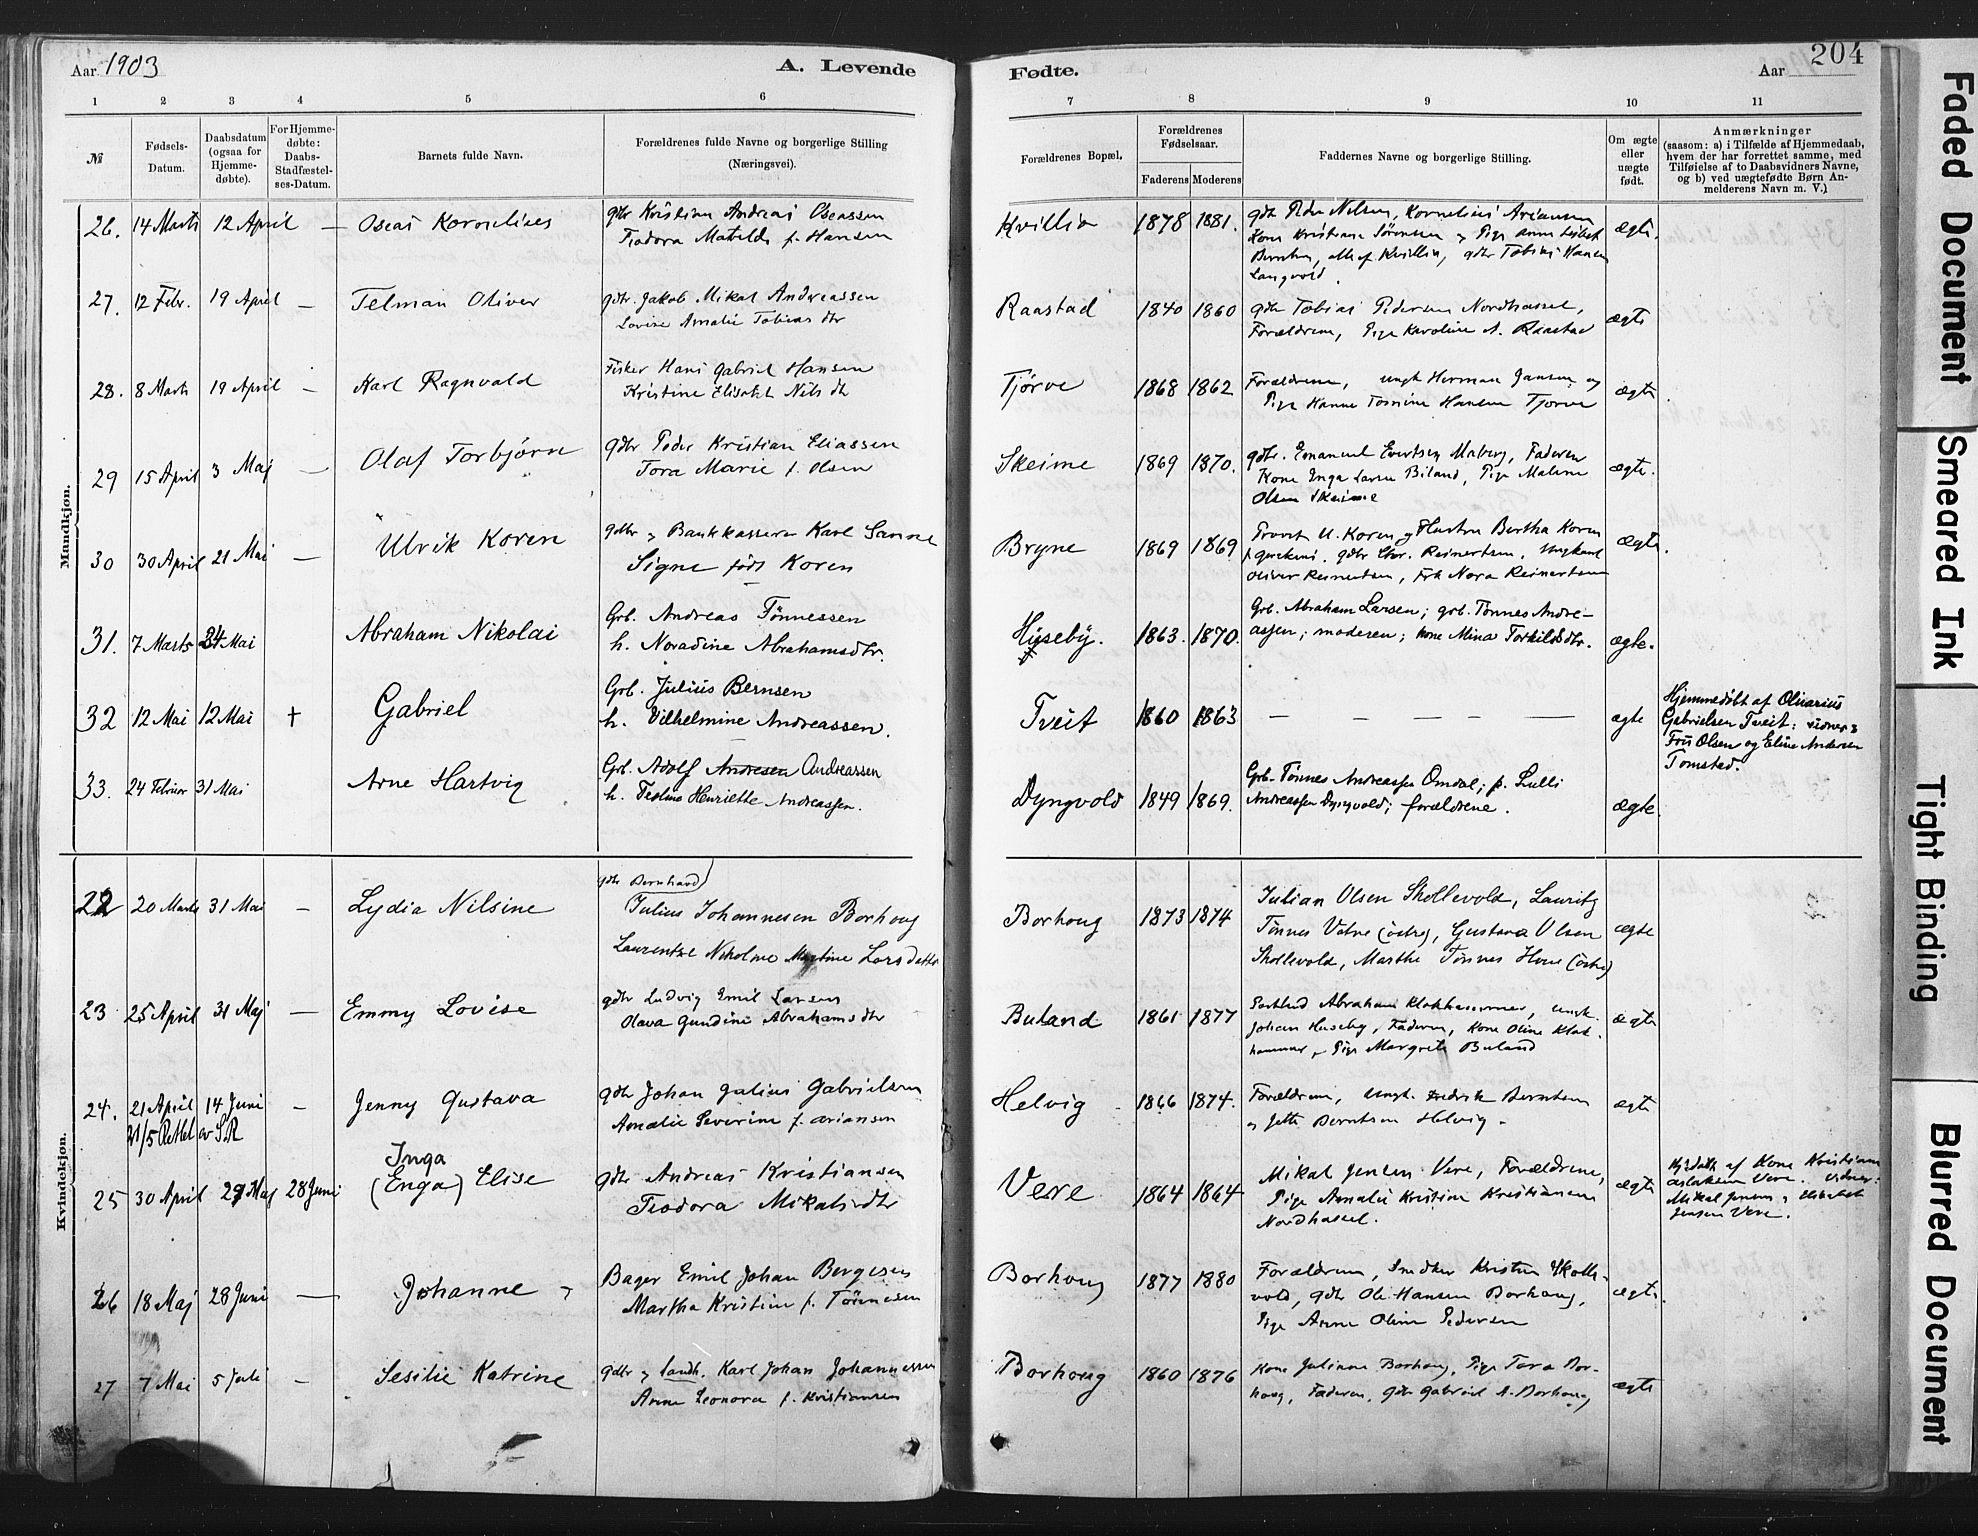 Aar 1903
A. Levende
Fødte.
Aar
204
1 2 3 4 5 6 7 8 9 10 11
№
Fødsels-
Datum.
Daabsdatum
(ogsaa for
Hjemme-
døbte).
For Hjemme-
døbte:
Daabs-
Stadfæstel-
ses-Datum.
Barnets fulde Navn.
Forældrenes fulde Navne og borgerlige Stilling
(Næringsvei).
Forældrenes Bopæl.
Forældrenes
Fødselsaar.
Faderens Moderens
Faddernes Navne og borgerlige Stilling.
Om ægte
eller
uægte
født.
Anmærkninger
(saasom: a) i Tilfælde af Hjemmedaab,
hvem der har forrettet samme, med
Tilføielse af to Daabsvidners Navne,
og b) ved uægtefødte Børn An-
melderens Navn m. V.)
Mandkjøn.
26. 14 Marts 12 April — Oseas Kornelius
gdbr Kristian Andreas Oseassen
Teodora Matilde f. Hansen
Kvillio 1878 1881.
gdbr Peder Nilsen, Kornelius Ariansen
Kone Kristiane Sørensen
Berntsen, alle af Kvillio, gdbr Tobias Hansen
Langvold
ægte.
27. 12 Febr. 19 April — Telman Oliver
gdbr. Jakob Mikal Andreassen
Lovise Amalie Tobias dtr
Raastad 1840 1860
gdbr Tobias Pedersen Nordhassel,
Forældrene, Pige Karoline A. Raastad
ægte
28. 8 Marts 19 April — Karl Ragnvald
Fisker Hans Gabriel Hansen
Kristine Elisabet Nils dt
Tjørve 1868 1862
Forældrene, ungk Herman Jansen og
Pige Hanne Tomine Hansen Tjørve
ægte
29 15 April 3 Maj — Olaf Torbjørn
gdbr Peder Kristian Eliassen
Tora Marie f. Olsen
Skeime 1869 1870.
gdbr. Emanuel Evertsen Maberg, Faderen
Kone Inga Larsen Biland, Pige Malene
Olsen Skeime
ægte.
30 30 April 21 Mai — Ulrik Koren
gdbr og Bankkasserer Karl Sanne
Signe født Koren
Bryne 1869 1869
Provst U. Koren og Hustru Bertha Koren
gdbr Chr. Reinertsen, Ungkarl
Oliver Reinertsen, Frk Nora Reinertsen
ægte.
31. 7 Marts 24 Mai Abraham Nikolai
Grb. Andreas Tønnessen
h. Noradine Abrahamsdtr.
Huseby. 1863. 1870.
Grb. Abraham Larsen; grb. Tønnes Andre-
assen; moderen; kone Mina Torkildsdtr.
ægte.
32 12 Mai 12 Mai + Gabriel
Grb. Julius Bernsen
h. Vilhelmine Andreassen.
Tveit 1860 1863
— — — — —
ægte
Hjemmedøbt af Olivarius
Gabrielsen Tveit: vidner:
Olsen og Eline Andersen
Tomstad.
33. 24 Februar 31 Mai Arne Hartvig
Grb. Adolf Andresen Andreassen
h. Teoline Henriette Andreassen.
Dyngvold 1849 1869.
Grb. Tønnes Andreassen Omdal; p. Lulli
Andreassen Dyngvold; forældrene.
ægte.
Kvindekjøn.
22 20 Marts 31 Mai — Lydia Nilsine
gdbr Bernhard
Julius Johannesen Borhoug
Laurentze Nikoline Martine Larsdatter
Borhoug 1873 1874
Julian Olsen Skollevold, Lauritz
Tønnes Vatne (østre), Gustava Olsen
Skollevold, Marthe Tønnes Hove (østre)
ægte
23 25 April 31 Maj — Emmy Lovise
gdbr Ludvig Emil Larsen
Olava Gundine Abrahamsdtr
Buland 1861 1877
Abraham Klokhammer, ungk.
Johan Huseby, Faderen, Kone Oline Klok-
hammer, Pige Margrete Buland
ægte
24. 21 April 14 Juni — Jenny Gustava
21/5 Rettet av S.R
gdbr Johan Julius Gabrielsen
Amalie Severine f. Ariansen
Helvig 1866 1874.
Forældrene, Ungk. Fredrik Berntsen
og Jette Berntsen Helvig.
ægte
Inga
25 30 April 29 Maj 28 Juni (Enga) Elise
gdbr Andreas Kristiansen
Teodora Mikalsdtr
Vere 1864 1864
Mikal Jensen Vere, Forældrene,
Pige Amalie Kristine Kristiansen
Nordhassel.
ægte
Hjdøbt af Kone Kristiane
Aslaksen Vere. Vidner:
Mikal Jensen, Elisabet
Jensen Vere.
26 18 Maj 28 Juni — Johanne
Bager Emil Johan Børgesen
Martha Kristine f. Tønnesen
Borhoug 1877 1880
Forældrene, Snedker Kristen Skolle-
vold, gdbr Ole Hansen Borhoug,
Pige Anne Oline Pedersen
ægte.
27 7 Mai 5 Juli — Sesilie Katrine
gdbr og Landh. Karl Johan Johannessen
Anne Leonora f. Kristiansen
Borhoug 1860 1876
Kone Julianne Borhoug, Pige Tora Bor-
houg, Faderen, Gdbr Gabriel A. Borhoug
ægte
Faded Document
Smeared Ink
Tight Binding
Blurred Document